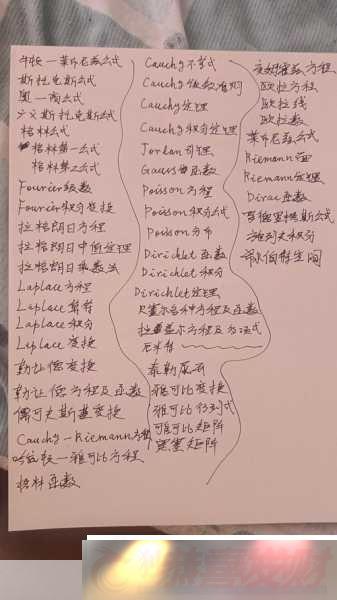 牛顿—莱布尼兹公式
斯托克斯公式
奥—高公式
广义斯托克斯公式
格林公式
格林第一公式
格林第二公式
Fourier级数
Fourier积分变换
拉格朗日方程
拉格朗日中值定理
拉格朗日乘数法
Laplace方程
Laplace算符
Laplace积分
Laplace变换
勒让德变换
勒让德方程及函数
Cauchy—Riemann方程
哈密顿—雅可比方程
格林函数
Cauchy不等式
Cauchy级数准则
Cauchy定理
Cauchy积分定理
Jordan引理
Gauss函数
Poisson方程
Poisson积分公式
Poisson分布
Dirichlet函数
Dirichlet积分
Dirichlet定理
贝塞尔各种方程及函数
拉盖尔方程及多项式
厄米特
泰勒展开
雅可比变换
雅可比行列式
雅可比矩阵
黑塞矩阵
欧拉方程
欧拉线
欧拉数
莱布尼兹公式
Riemann面
Riemann定理
Dirac函数
希尔伯特空间